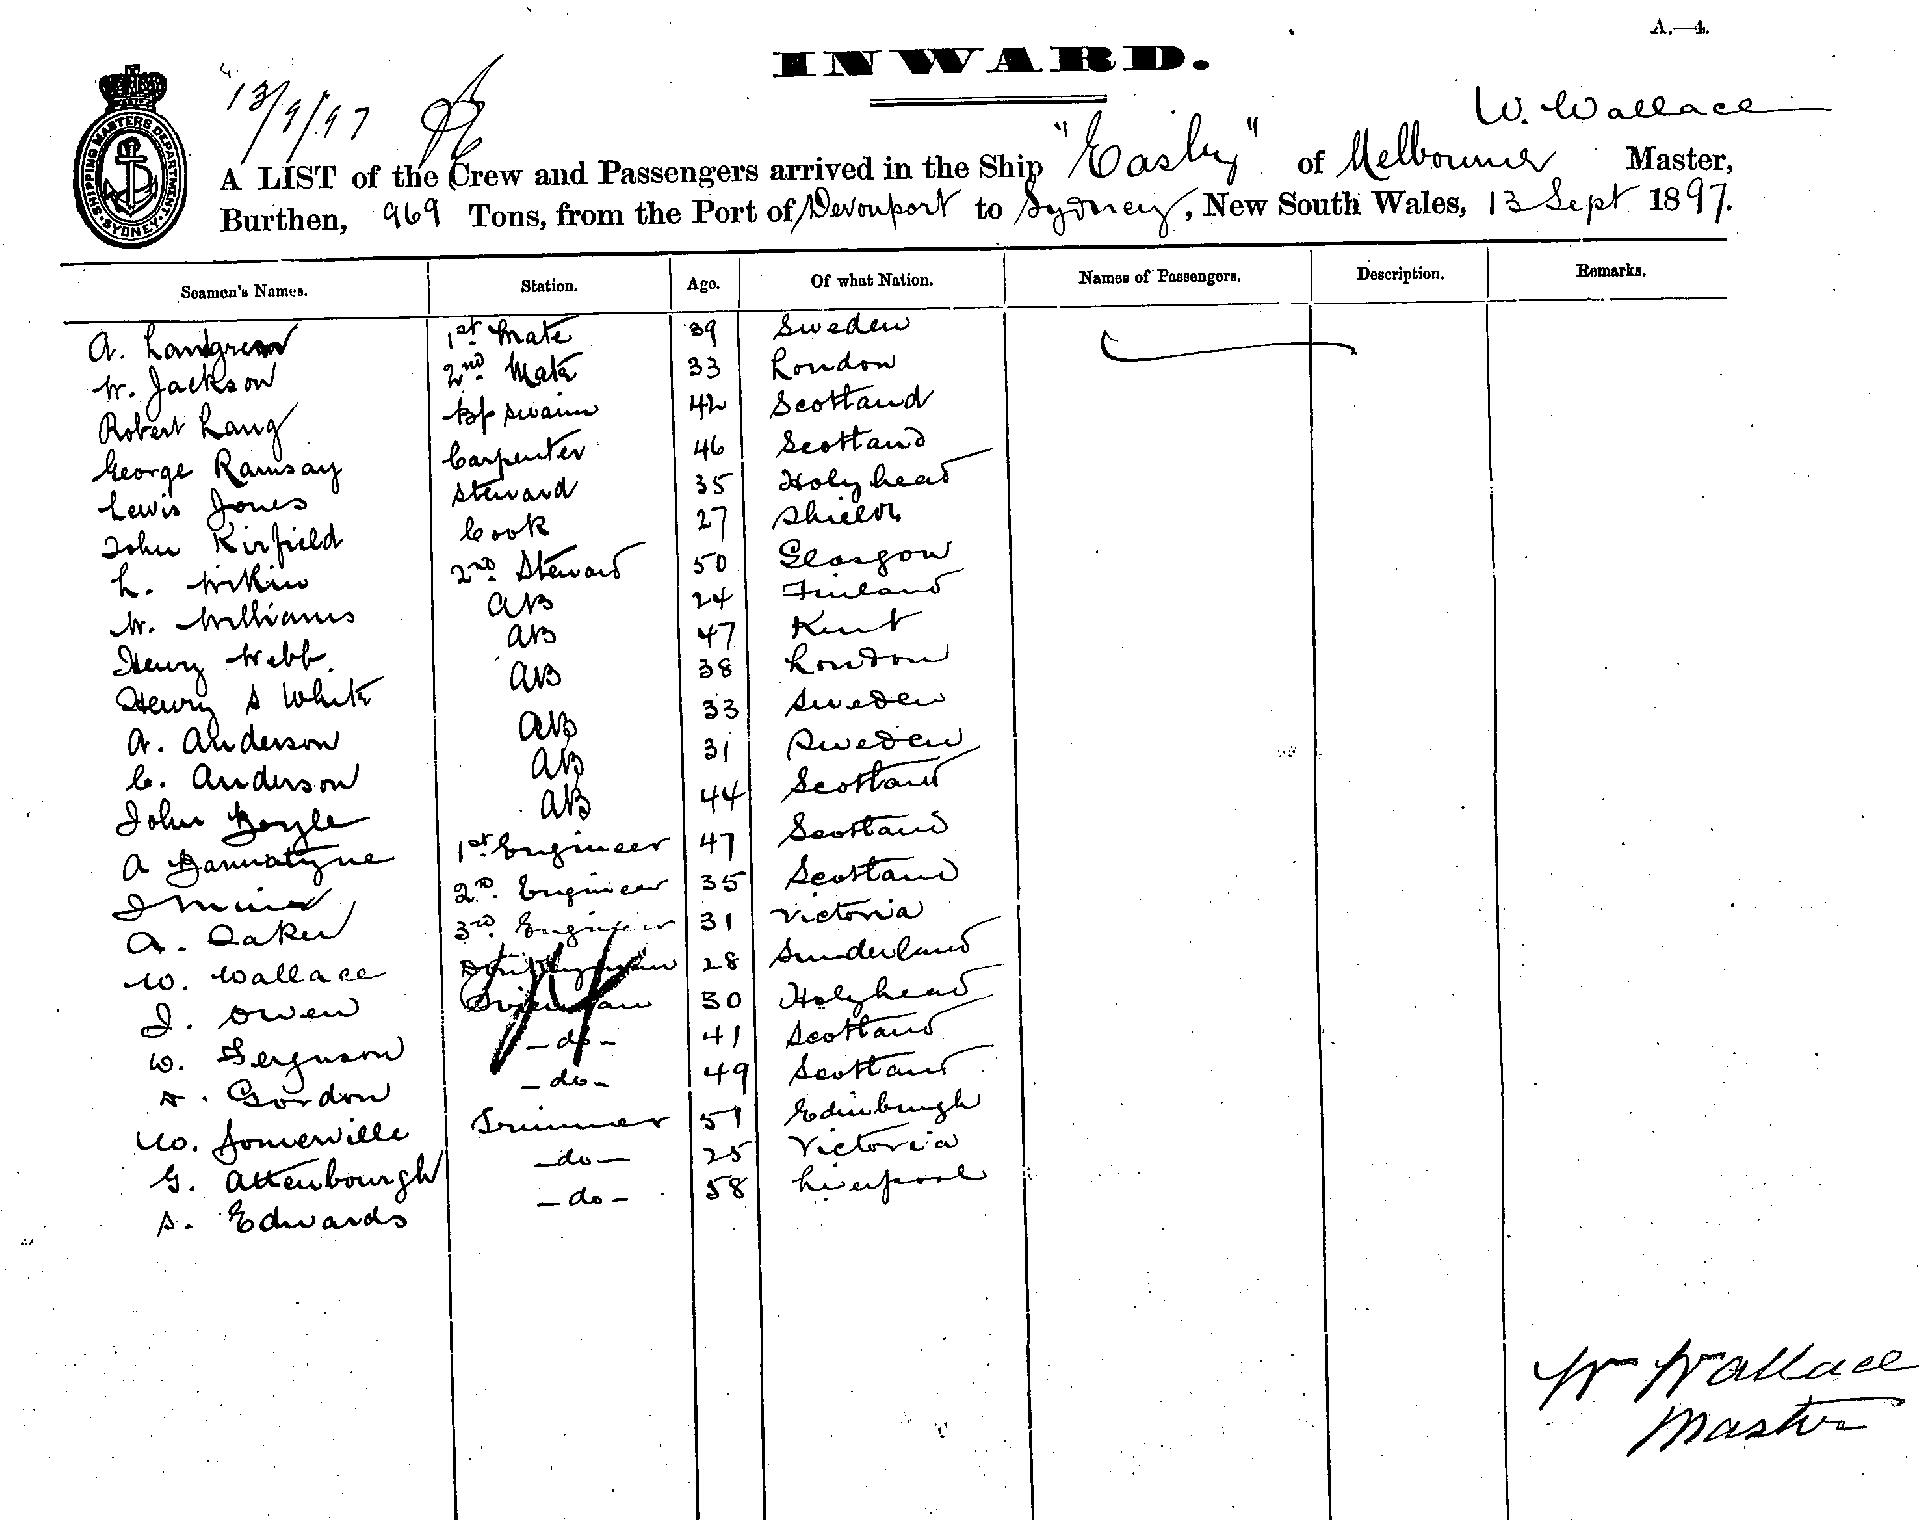 A.—4.
INWARD.
SHIPPING MASTERS DEPARTMENT
SYDNEY
13/9/97
W. Wallace
A LIST of the Crew and Passengers arrived in the Ship "Easby" of Melbourne Master,
Burthen, 969 Tons, from the Port of Devonport to Sydney, New South Wales, 13 Sept 1897.
Seamen's Names. Station. Age. Of what Nation. Names of Passengers. Description. Remarks.
A. 1st Mate 39 Sweden
W. Jackson 2nd Mate 33 London
Robert Lang Bp swain 42 Scotland
George Ramsay Carpenter 46 Scotland
Lewis Jones Steward 35 Holyhead
John Kirfield Cook 27 Shields
L. 2nd Steward 50 Glasgow
W. Williams AB 24 Finland
Henry Webb. AB 47 Kent
Henry S White AB 38 London
A. Anderson AB 33 Sweden
C. Anderson AB 31 Sweden
John Boyle AB 44 Scotland
A Bannatyne 1st Engineer 47 Scotland
2nd Engineer 35 Scotland
A. 3rd Engineer 31 Victoria
W. Wallace 28 Sunderland
J. Owen Fireman 30 Holyhead
W. Ferguson —do— 41 Scotland
Gordon —do— 49 Scotland
W. Somerville Trimmer 51 Edinburgh
G. Attenbourgh —do— 25 Victoria
S. Edwards —do— 58 Liverpool
W Wallace
Master